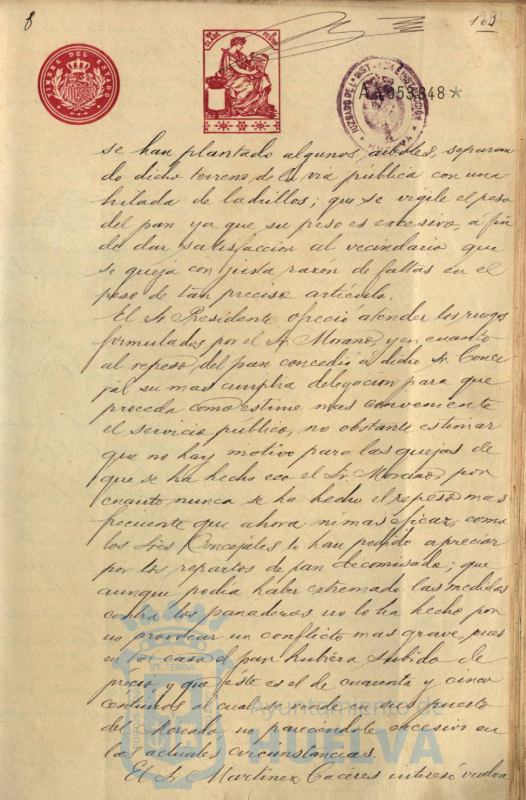 8
169
TIMBRE DEL ESTADO
CLASE
JUZGADO DE 1ª INSTANCIA E INSTRUCCIÓN
HUELVA
A4,053,848*
se han plantado algunos árboles, separan
do dicho terreno de la via publica con una
hilada de ladrillos; que se vigile el peso
del pan ya que su peso es excesivo, a fin
de dar satisfacción al vecindario que
se queja con justa razón de faltas en el
peso de tan preciso artículo.
El Sr. Presidente ofreció atender los ruegos
formulados por el Sr. Morano, y en cuanto
al repeso del pan concedió a dicho Sr. Conce
jal su mas amplia delegacion para que
proceda como estime mas conveniente
el servicio publico, no obstante estimar
que no hay motivo para las quejas de
que se ha hecho eco el Sr. Morano, por
cuanto nunca se ha hecho el repeso mas
frecuente que ahora ni mas eficaz, como
los Sres Concejales lo han podido apreciar
por los repartos de pan decomisado; que
aunque podia haber extremado las medidas
contra los panaderos no lo ha hecho por
no provocar un conflicto mas grave, pues
en tal caso el pan hubiera subido de
precio, y que este es el de cuarenta y cinco
centimos al cual se vende en su puesto
del Mercado, no pareciendole excesivo en
las actuales circunstancias.
El Sr. Martinez Caceres interesó vuelva
Ayuntamiento de
HUELVA